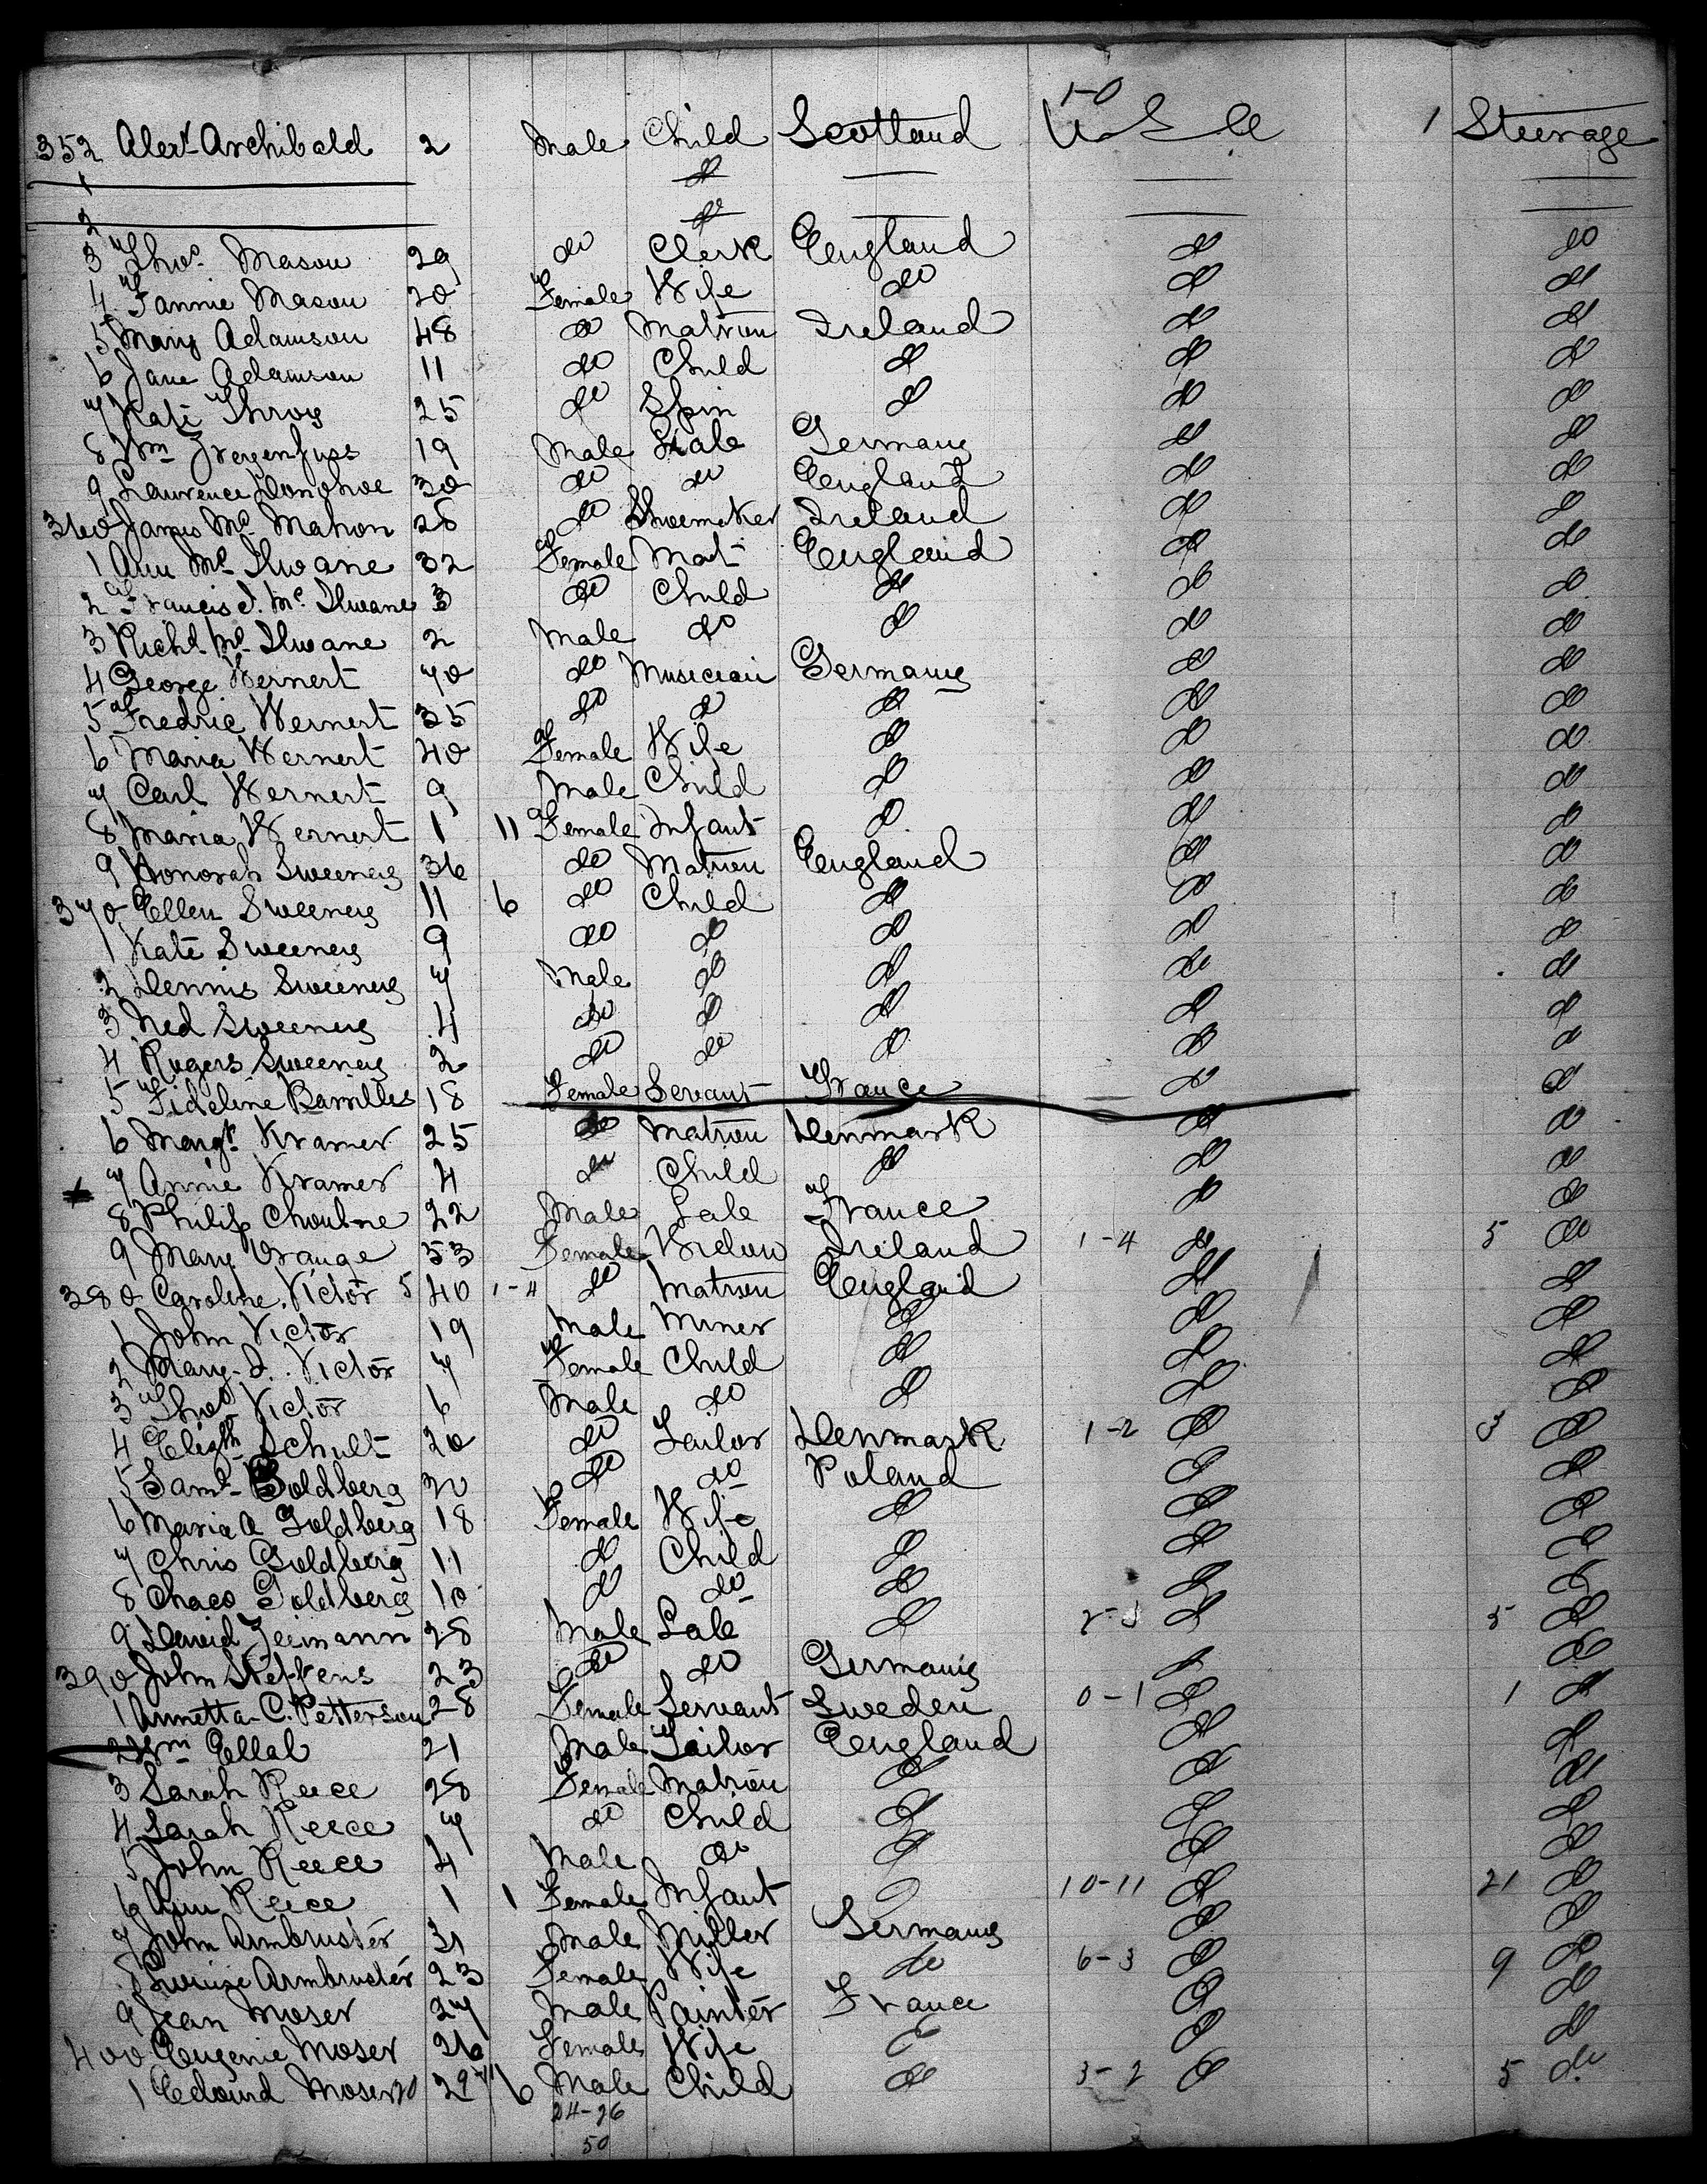 1-0
352 Alexr Archibald 2 Male Child Scotland U S A 1 Steerage
1 do
2 do
3 Thos. Mason 29 do Clerk England do do
4 Fannie Mason 20 Female Wife do do do
5 Mary Adamson 48 do Matron Ireland do do
6 Jane Adamson 11 do Child do do do
7 Kate Throy 25 do Spin do do do
8 Wm 19 Male Lab Germany do do
9 Laurence Donohoe 30 do do England do do
360 James Mc Mahon 28 do Shoemaker Ireland do do
1 Ann Mc Ilwane 32 Female Mat England do do
2 Francis J. Mc Ilwane 3 do Child do do do
3 Richd Mc Ilwane 2 Male do do do do
4 George Wernert 40 do Musician Germany do do
5 Fredric Wernert 35 do do do do do
6 Maria Wernert 40 Female Wife do do do
7 Carl Wernert 9 Male Child do do do
8 Maria Wernert 1 11 Female Infant do do do
9 Honorah Sweeney 36 do Matron England do do
370 Ellen Sweeney 11 6 do Child do do do
1 Kate Sweeney 9 do do do do do
2 Dennis Sweeney 7 Male do do do do
3 Ned Sweeney 4 do do do do do
4 Rogers Sweeney 2 do do do do do
5 Fideline 18 Female Servant France do do
6 Margt. Kramer 25 do Matron Denmark do do
7 Annie Kramer 4 do Child do do do
8 Philip 22 Male Lab France do do
9 Mary Orange 53 Female Widow Ireland 1-4 do 5 do
380 Caroline Victor 5 40 1-4 do Matron England do do
1 John Victor 19 Male Miner do do do
2 Mary J. Victor 7 Female Child do do do
3 Thos Victor 6 Male do do do do
4 Elizth Schult 20 do Tailor Denmark 1-2 do 3 do
5 Saml Goldberg 20 do do Poland do do
6 Maria A Goldberg 18 Female Wife do do do
7 Chris Goldberg 11 do Child do do do
8 Chaco Goldberg 10 do do do do do
9 David Zeimann 28 Male Lab do 2-3 do 5 do
390 John Steffens 23 do do Germany do do
1 Annetta C. Petterson 28 Female Servant Sweden 0-1 do 1 do
2 Wm Ellab 21 Male Tailor England do do
3 Sarah Reece 28 Female Matron do do do
4 Sarah Reece 7 do Child do do do
5 John Reece 4 Male do do do do
6 Ann Reece 1 1 Female Infant do 10-11 do 21 do
7 John Armbruster 31 Male Miller Germany do do
8 Louise Armbruster 23 Female Wife do 6-3 do 9 do
9 Jean Moser 27 Male Painter France do do
400 Eugenie Moser 26 Female Wife do do do
1 Edourd Moser 29 6 Male Child do 3-2 do 5 do
24-26
50